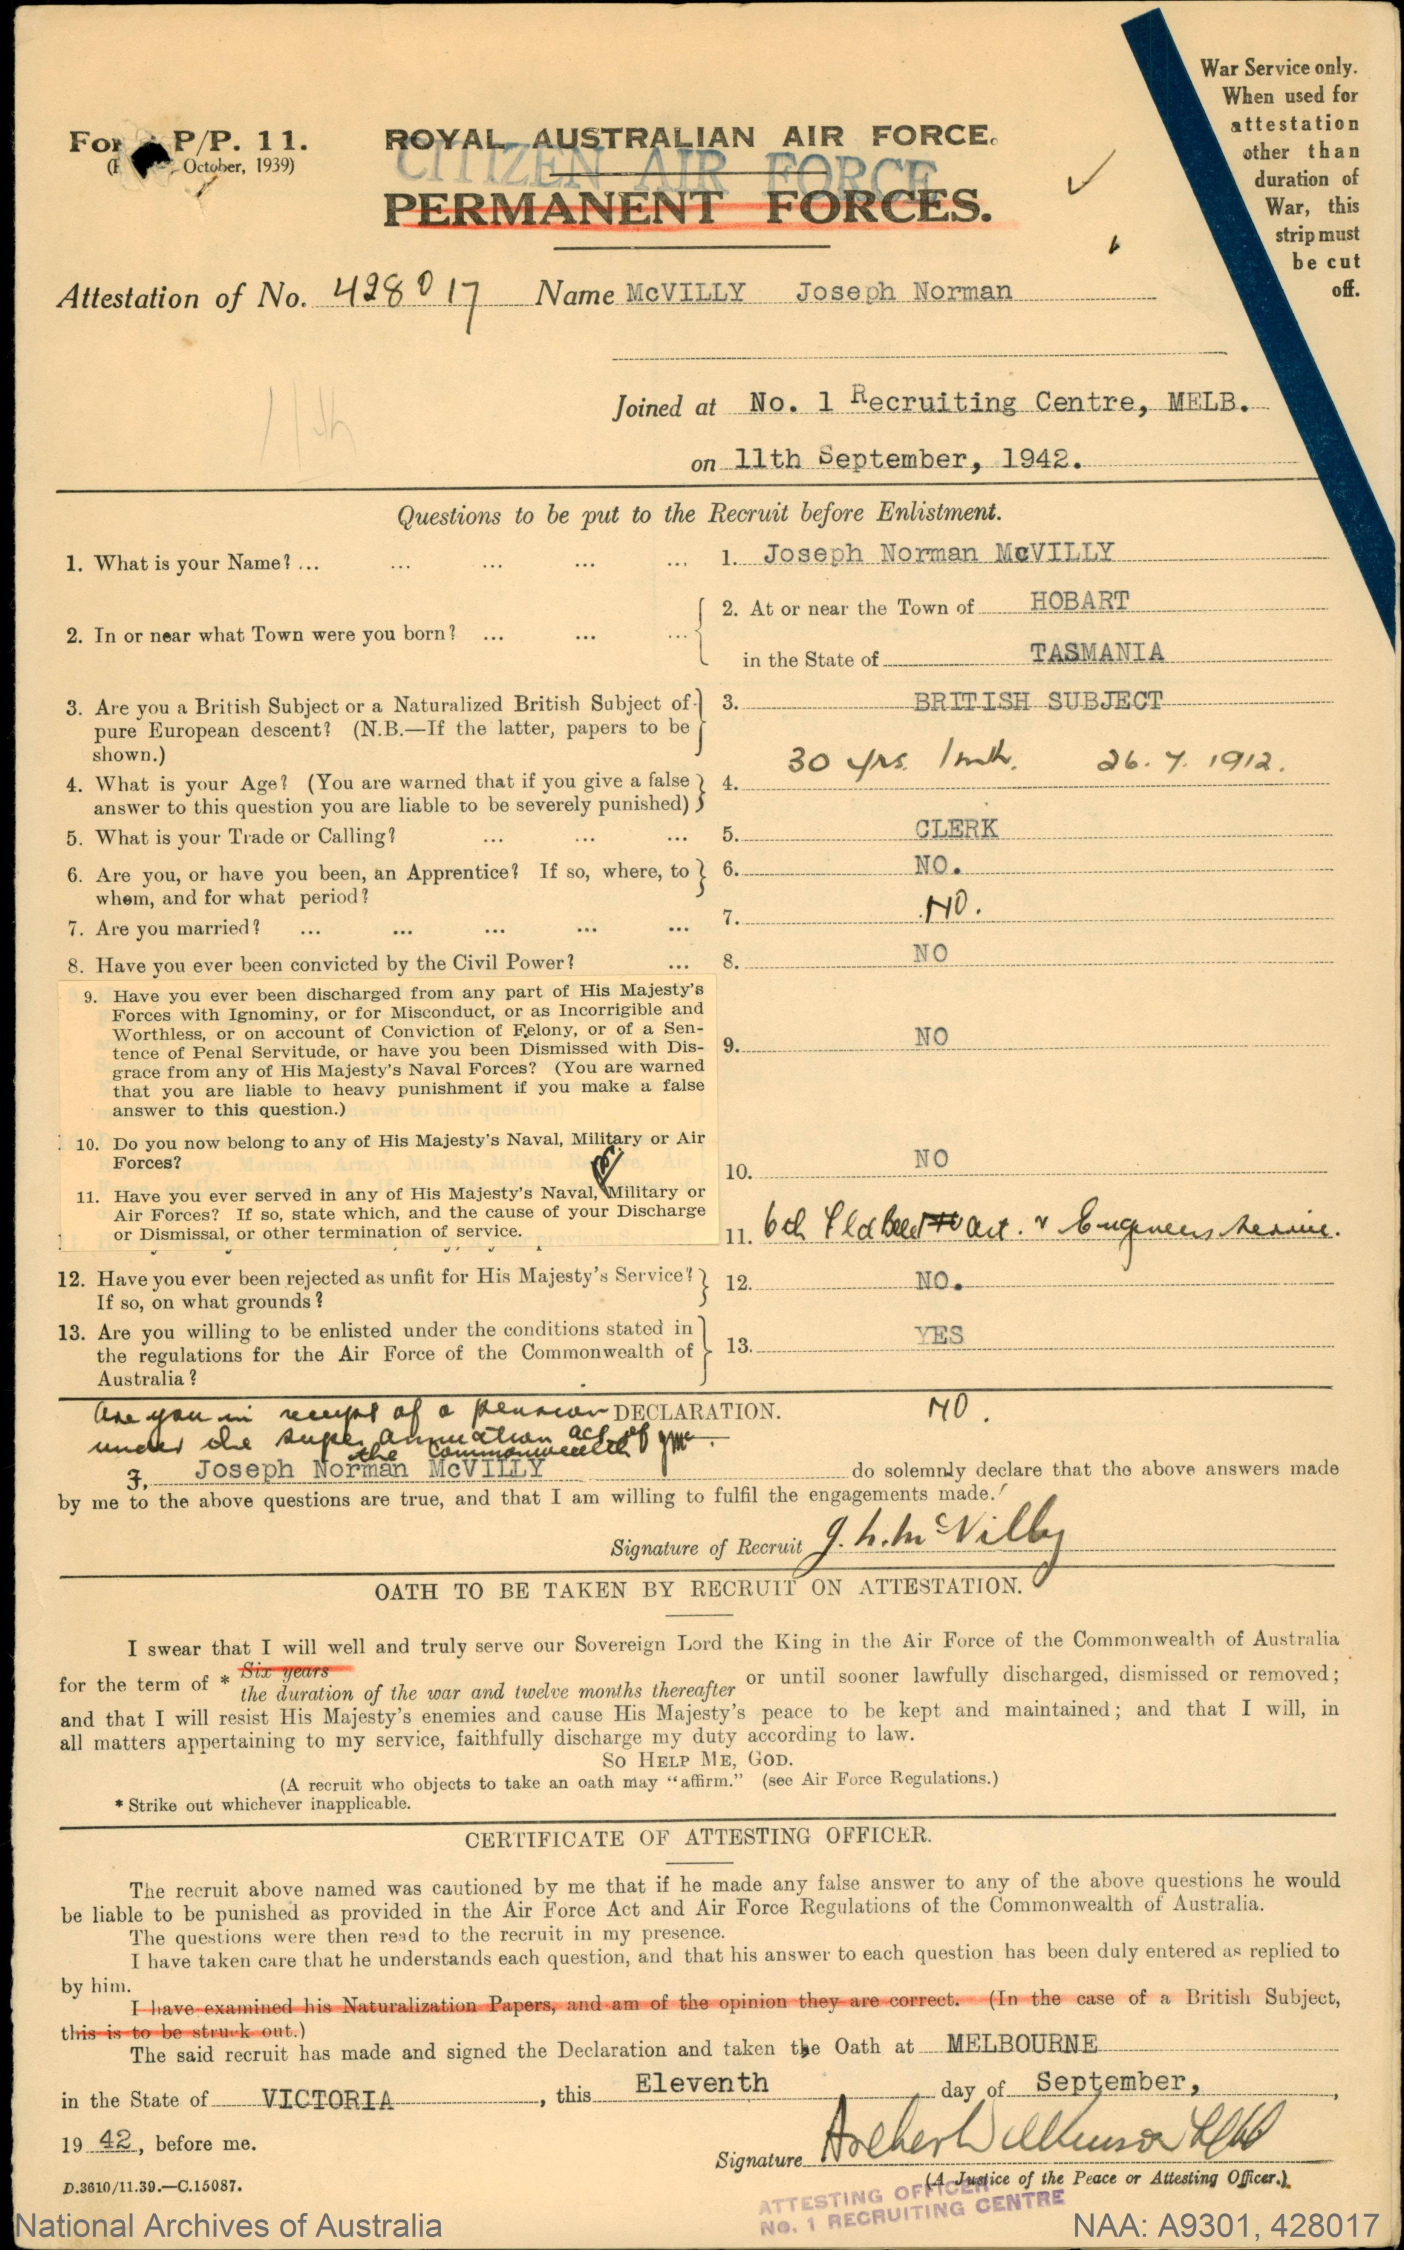 War Service only.
When used for
attestation
other than
duration of
War, this
strip must
be cut
off.
P/P. 11.
October, 1939)
ROYAL AUSTRALIAN AIR FORCE.
CITIZEN AIR FORCE
PERMANENT FORCES.
Attestation of No. 428017 Name McVILLY Joseph Norman
11th
Joined at No. 1 Recruiting Centre, MELB.
on 11th September, 1942.
Questions to be put to the Recruit before Enlistment.
1. What is your Name? ... ... ... ... ... 1. Joseph Norman McVILLY
2. In or near what Town were you born? ... ... ... 2. At or near the Town of HOBART
in the State of TASMANIA
3. Are you a British Subject or a Naturalized British Subject of 3. BRITISH SUBJECT
pure European descent? (N.B.—If the latter, papers to be
shown.)
4. What is your Age? (You are warned that if you give a false 4. 30 yrs. 1 mth. 26.7.1912.
answer to this question you are liable to be severely punished)
5. What is your Trade or Calling? ... ... ... 5. CLERK
6. Are you, or have you been, an Apprentice? If so, where, to 6. NO.
whom, and for what period?
7. Are you married? ... ... ... ... ... 7. NO.
8. Have you ever been convicted by the Civil Power? ... 8. NO
9. Have you ever been discharged from any part of His Majesty's
Forces with Ignominy, or for Misconduct, or as Incorrigible and
Worthless, or on account of Conviction of Felony, or of a Sen-
tence of Penal Servitude, or have you been Dismissed with Dis- 9. NO
grace from any of His Majesty's Naval Forces? (You are warned
that you are liable to heavy punishment if you make a false
answer to this question.)
10. Do you now belong to any of His Majesty's Naval, Military or Air
Forces? 10. NO
11. Have you ever served in any of His Majesty's Naval, Military or
Air Forces? If so, state which, and the cause of your Discharge
or Dismissal, or other termination of service. 11. 6th Fld Art. & Engineers
12. Have you ever been rejected as unfit for His Majesty's Service? 12. NO.
If so, on what grounds?
13. Are you willing to be enlisted under the conditions stated in 13. YES
the regulations for the Air Force of the Commonwealth of
Australia?
Are you in receipt of a pension DECLARATION. NO.
under the superannuation act of
the Commonwealth
I, Joseph Norman McVILLY do solemnly declare that the above answers made
by me to the above questions are true, and that I am willing to fulfil the engagements made.
Signature of Recruit J. N. McVilly
OATH TO BE TAKEN BY RECRUIT ON ATTESTATION.
I swear that I will well and truly serve our Sovereign Lord the King in the Air Force of the Commonwealth of Australia
for the term of * Six years
the duration of the war and twelve months thereafter or until sooner lawfully discharged, dismissed or removed;
and that I will resist His Majesty's enemies and cause His Majesty's peace to be kept and maintained; and that I will, in
all matters appertaining to my service, faithfully discharge my duty according to law.
SO HELP ME, GOD.
(A recruit who objects to take an oath may "affirm." (see Air Force Regulations.)
* Strike out whichever inapplicable.
CERTIFICATE OF ATTESTING OFFICER.
The recruit above named was cautioned by me that if he made any false answer to any of the above questions he would
be liable to be punished as provided in the Air Force Act and Air Force Regulations of the Commonwealth of Australia.
The questions were then read to the recruit in my presence.
I have taken care that he understands each question, and that his answer to each question has been duly entered as replied to
by him.
I have examined his Naturalization Papers, and am of the opinion they are correct. (In the case of a British Subject,
this is to be struck out.)
The said recruit has made and signed the Declaration and taken the Oath at MELBOURNE
in the State of VICTORIA, this Eleventh day of September,
19 42, before me.
Signature Archer Wilkinson
(A Justice of the Peace or Attesting Officer.)
D.3610/11.39.—C.15087.
ATTESTING OFFICER
No. 1 RECRUITING CENTRE
National Archives of Australia NAA: A9301, 428017